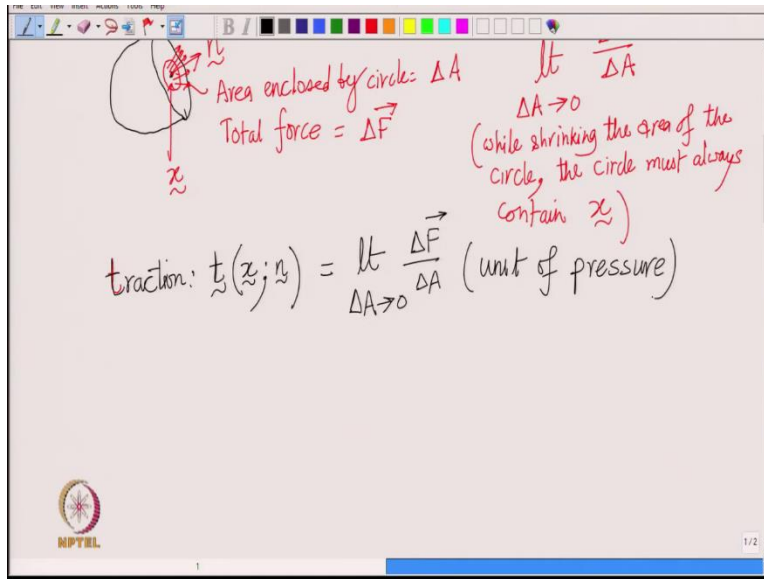 File Edit View Insert Actions Tools Help
B I
n
Area enclosed by circle = ΔA
Total force = ΔF⃗
x
lt ΔA
ΔA→0
(while shrinking the area of the
circle, the circle must always
contain x)
traction: t(x; n) = lt ΔF⃗/ΔA (unit of pressure)
ΔA→0
NPTEL
1/2
1